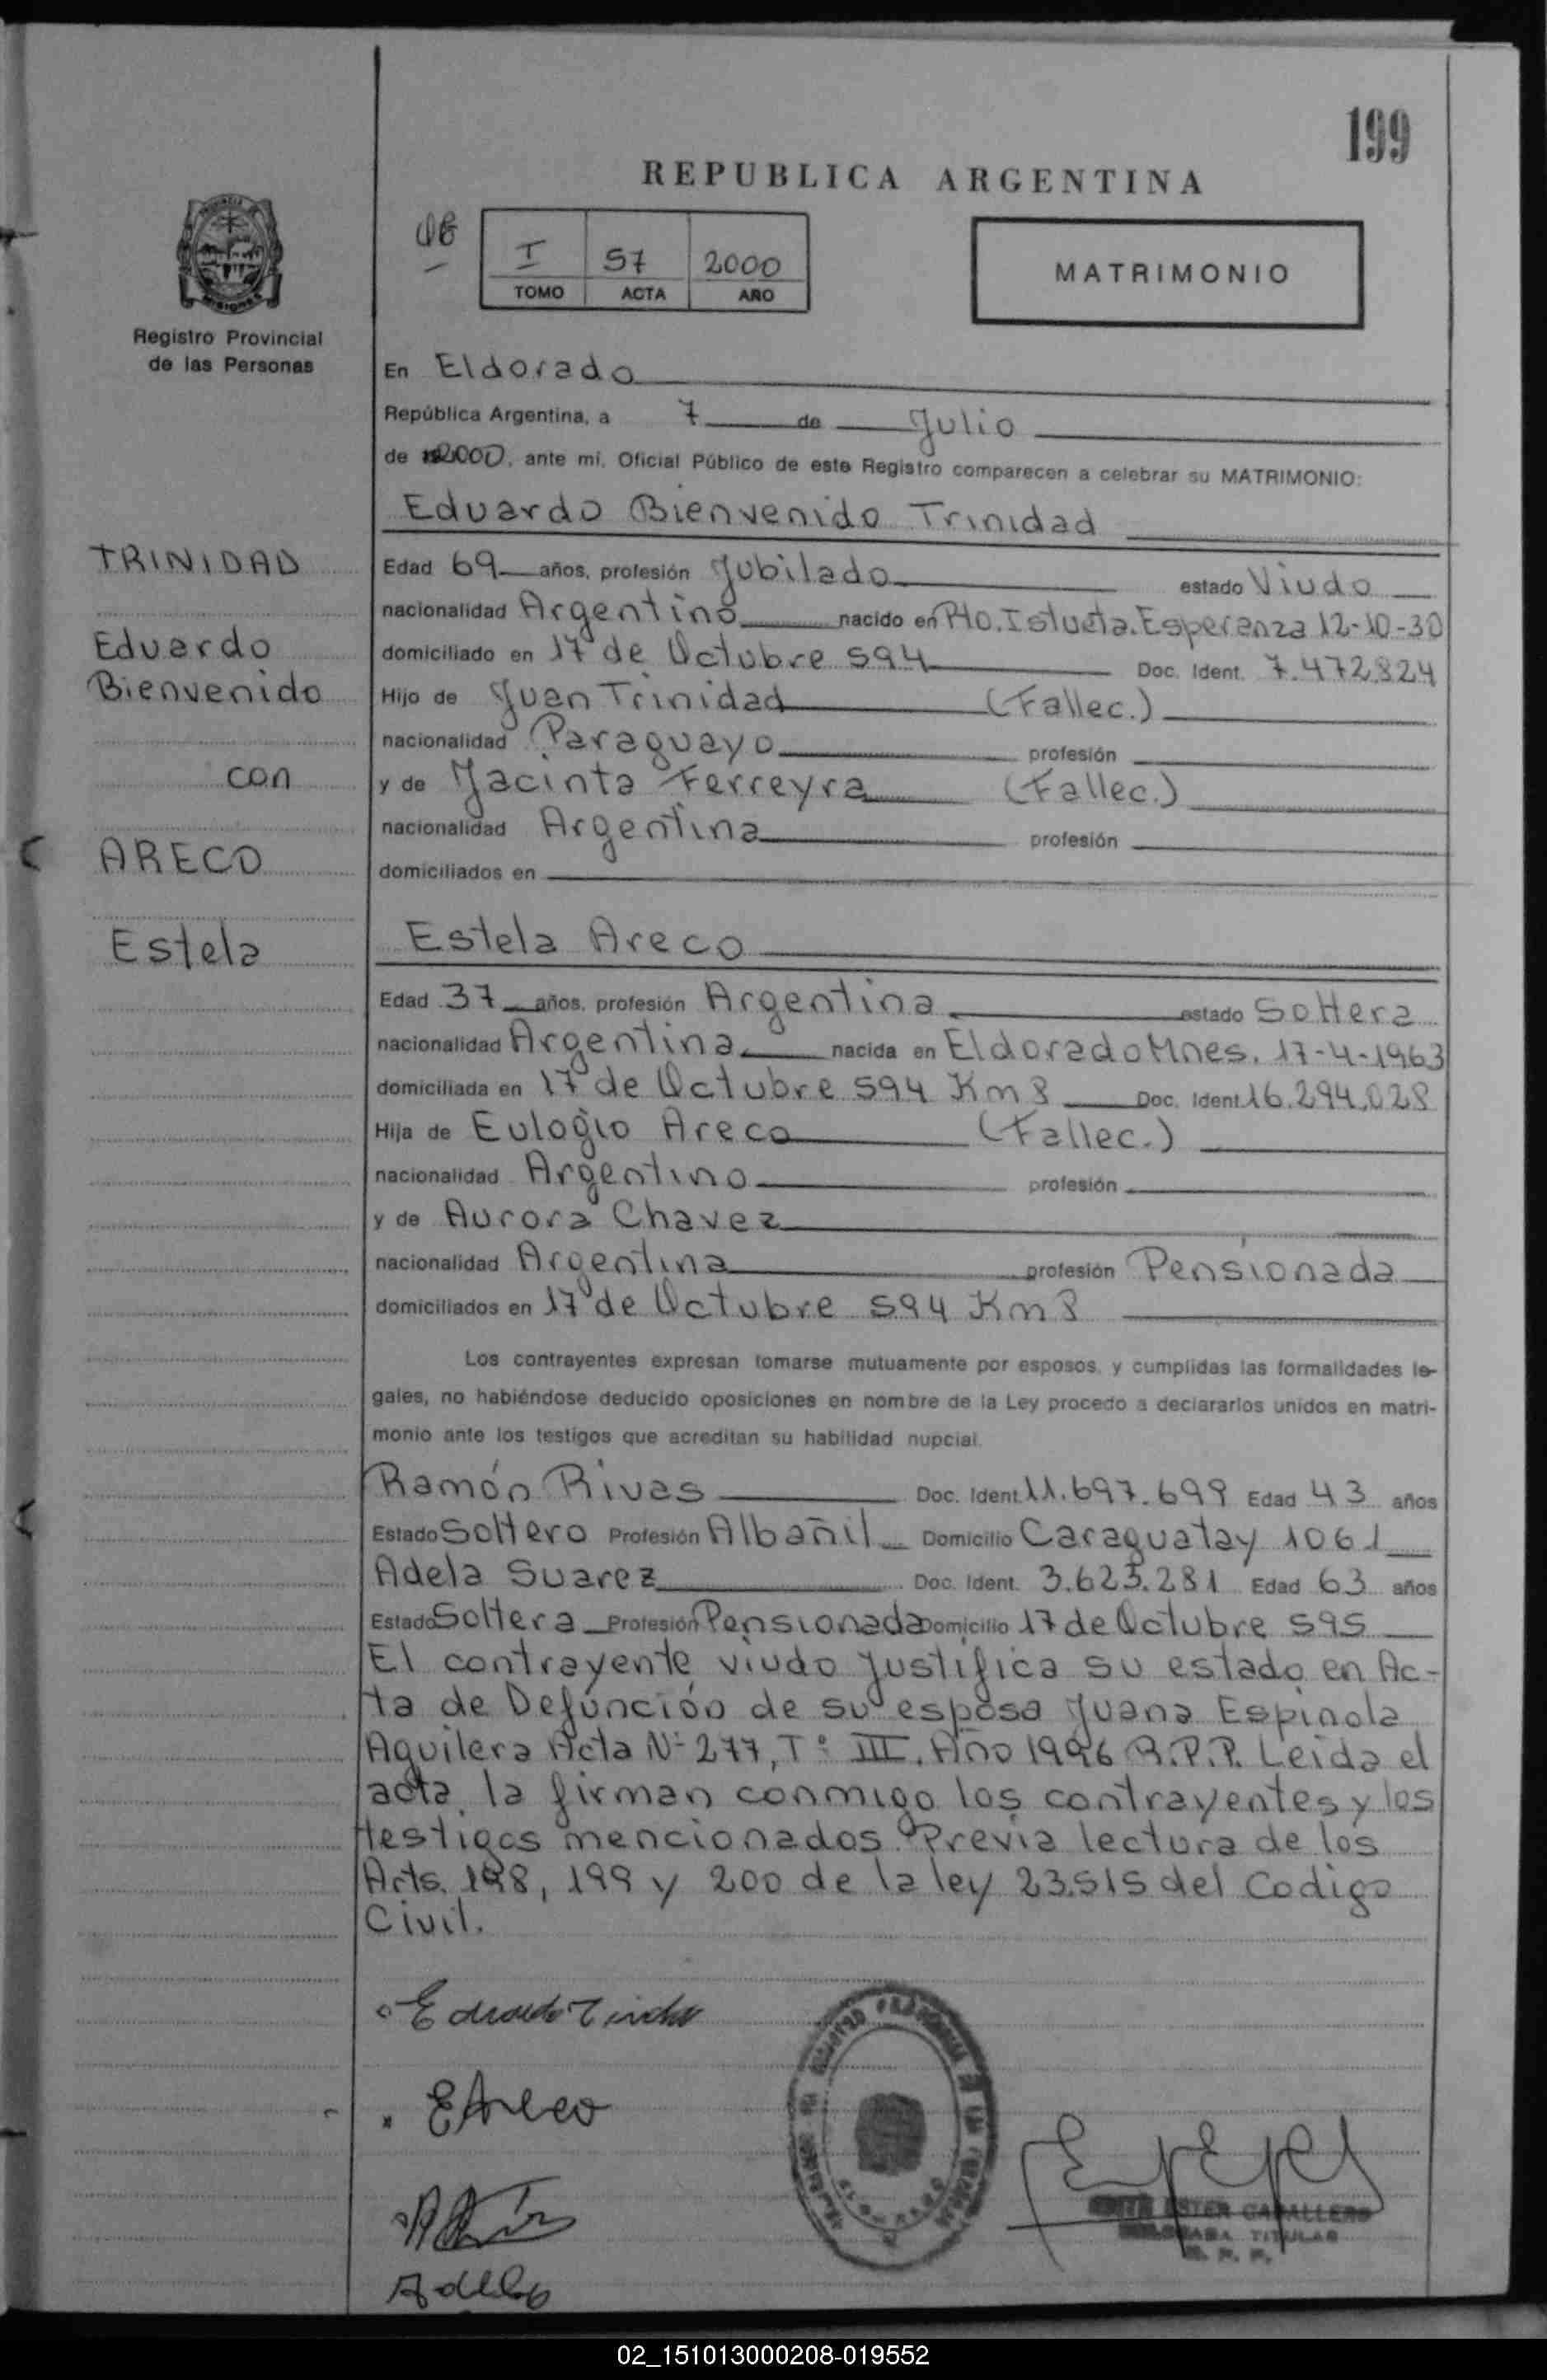 199
REPUBLICA ARGENTINA
I 57 2000
TOMO ACTA AÑO
MATRIMONIO
Registro Provincial
de las Personas
En Eldorado
República Argentina, a 7 de Julio
de 2000, ante mi, Oficial Público de este Registro comparecen a celebrar su MATRIMONIO:
Eduardo Bienvenido Trinidad
TRINIDAD
Eduardo
Bienvenido
con
ARECO
Estela
Edad 69 años, profesión Jubilado estado Viudo
nacionalidad Argentino nacido en Pto. Esperanza 12-10-30
domiciliado en 17 de Octubre 594 Doc. Ident. 7.472.824
Hijo de Juan Trinidad (Fallec.)
nacionalidad Paraguayo profesión
y de Jacinta Ferreyra (Fallec.)
nacionalidad Argentina profesión
domiciliados en
Estela Areco
Edad 37 años, profesión Argentina estado Soltera
nacionalidad Argentina nacida en Eldorado Mnes. 17-4-1963
domiciliada en 17 de Octubre 594 Km 8 Doc. Ident 16.294.028
Hija de Eulogio Areco (Fallec.)
nacionalidad Argentino profesión
y de Aurora Chavez
nacionalidad Argentina profesión Pensionada
domiciliados en 17 de Octubre 594 Km 8
Los contrayentes expresan tomarse mutuamente por esposos, y cumplidas las formalidades le-
gales, no habiéndose deducido oposiciones en nombre de la Ley procedo a declararlos unidos en matri-
monio ante los testigos que acreditan su habilidad nupcial.
Ramón Rivas Doc. Ident. 11.697.699 Edad 43 años
Estado Soltero Profesión Albañil Domicilio Caraguatay 1061
Adela Suarez Doc. Ident. 3.623.281 Edad 63 años
Estado Soltera Profesión Pensionada Domicilio 17 de Octubre 595
El contrayente viudo justifica su estado en Ac-
ta de Defunción de su esposa Juana Espinola
Aguilera Acta Nº 277, Tº III, Año 1996 R.P.P. Leida el
acta, la firman conmigo los contrayentes y los
testigos mencionados. Previa lectura de los
Arts. 198, 199 y 200 de la ley 23.515 del Codigo
Civil.
EAreco
Adela
ESTER CABALLERO
TITULAR
02_151013000208-019552